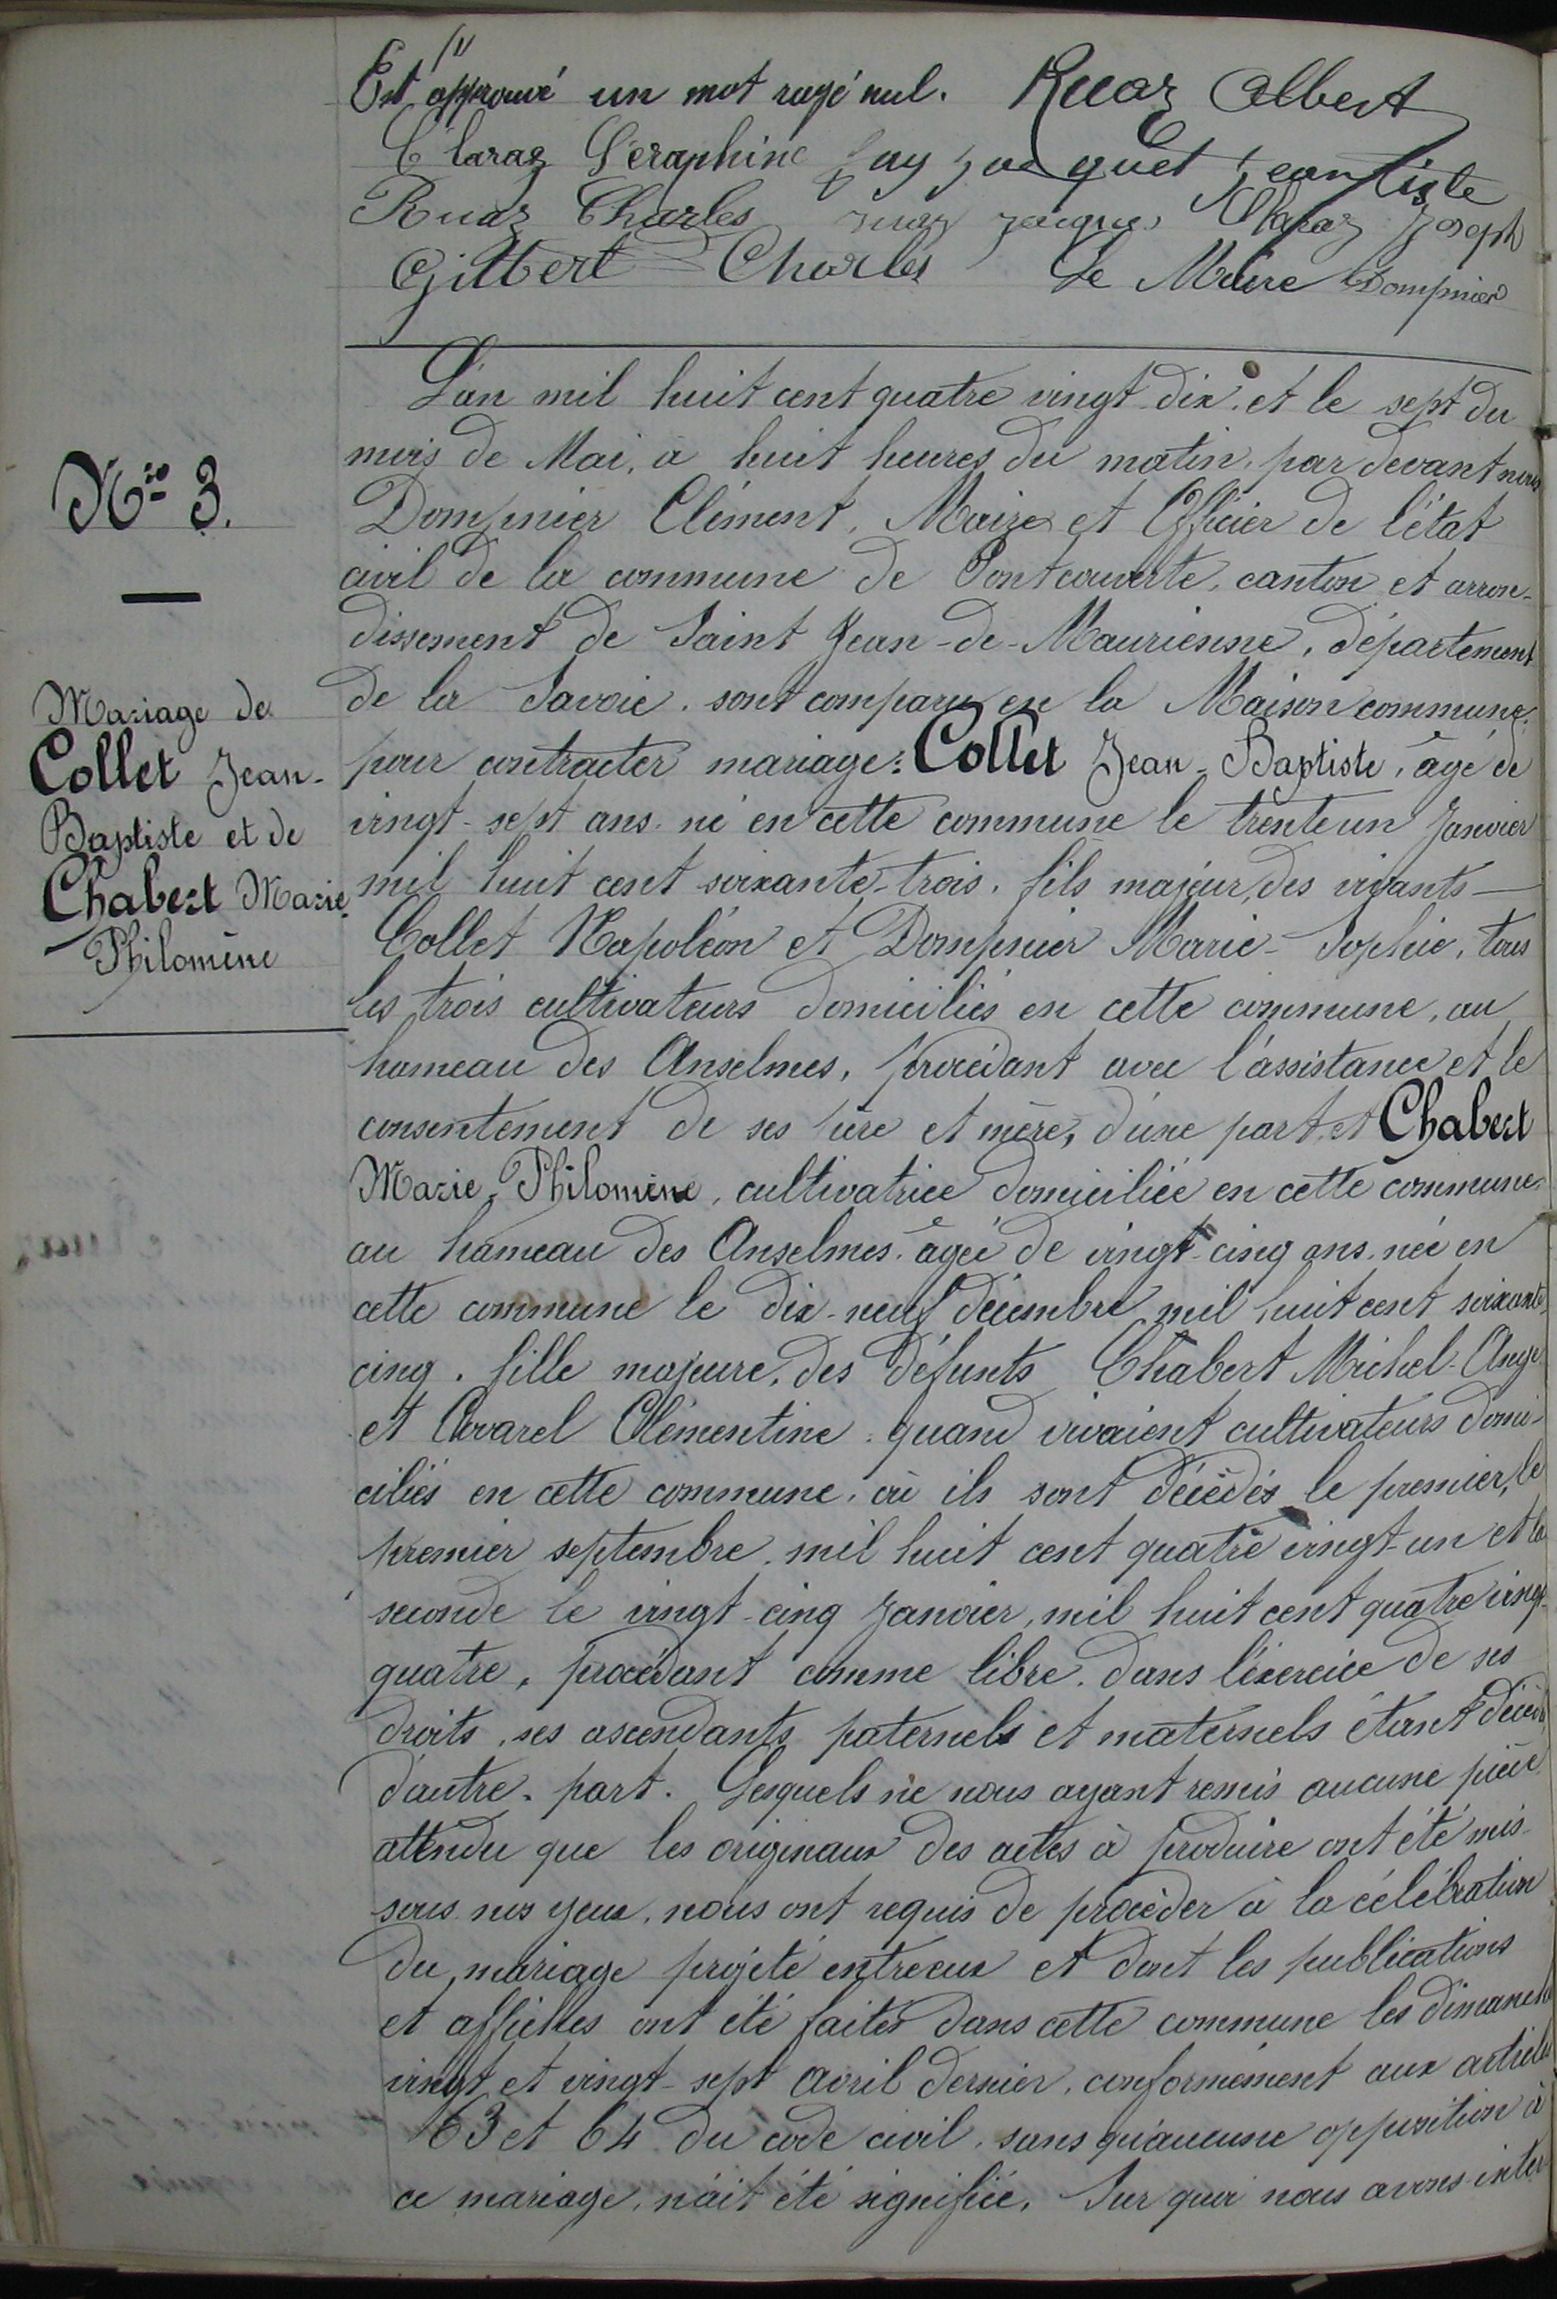 Est approuvé un mot rayé nul. Ruaz Albert
Claraz Séraphine Fay Jaquet Jean Btiste
Ruaz Charles ruaz jacques Claraz Joseph
Gilbert Charles Le Maire Dompnier
L'an mil huit cent quatre vingt dix et le sept du
mois de Mai, à huit heures du matin, par devant nous
Dompnier Clément, Maire et Officier de l'état
civil de la commune de Fontcouverte, canton et arron-
dissement de Saint Jean-de-Maurienne, département
de la Savoie, sont comparu en la Maison commune,
pour contracter mariage: Collet Jean-Baptiste, âgé de
vingt-sept ans, né en cette commune le trente un Janvier
mil huit cent soixante-trois, fils majeur, des vivants
Collet Napoléon et Dompnier Marie-Sophie, tous
les trois cultivateurs domiciliés en cette commune, au
hameau des Anselmes, procédant avec l'assistance et le
consentement de ses père et mère, d'une part, et Chabert
Marie-Philomène, cultivatrice domiciliée en cette commune,
au hameau des Anselmes, âgée de vingt-cinq ans, née en
cette commune le dix-neuf décembre mil huit cent soixante
cinq, fille majeure, des défunts Chabert Michel-Ange
et Covarel Clémentine quand vivaient cultivateurs domi-
ciliés en cette commune, où ils sont décédés le premier, le
premier septembre, mil huit cent quatre vingt-un et la
seconde le vingt-cinq Janvier, mil huit cent quatre vingt-
quatre, procédant comme libre dans l'exercice de ses
droits, ses ascendants paternels et maternels étant décédés
d'autre part. Lesquels ne nous ayant remis aucune pièce,
attendu que les originaux des actes à produire ont été mis
sous nos yeux, nous ont requis de procéder à la célébration
du mariage projeté entre eux et dont les publications
et affiches ont été faites dans cette commune les dimanche
vingt et vingt-sept avril dernier, conformément aux articles
63 et 64 du code civil, sans qu'aucune opposition à
ce mariage, n'ait été signifiée. Sur quoi nous avons inter
Nro 3.
Mariage de
Collet Jean-
Baptiste et de
Chabert Marie
Philomène